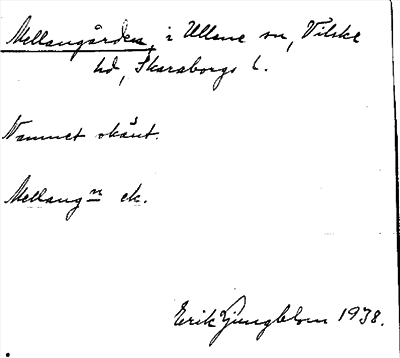 Mellangården, i Ullene sn, Vilske
hd, Skaraborgs l.
Namnet okänt.
Mellangn ek.
Erik Ljungblom 1938.